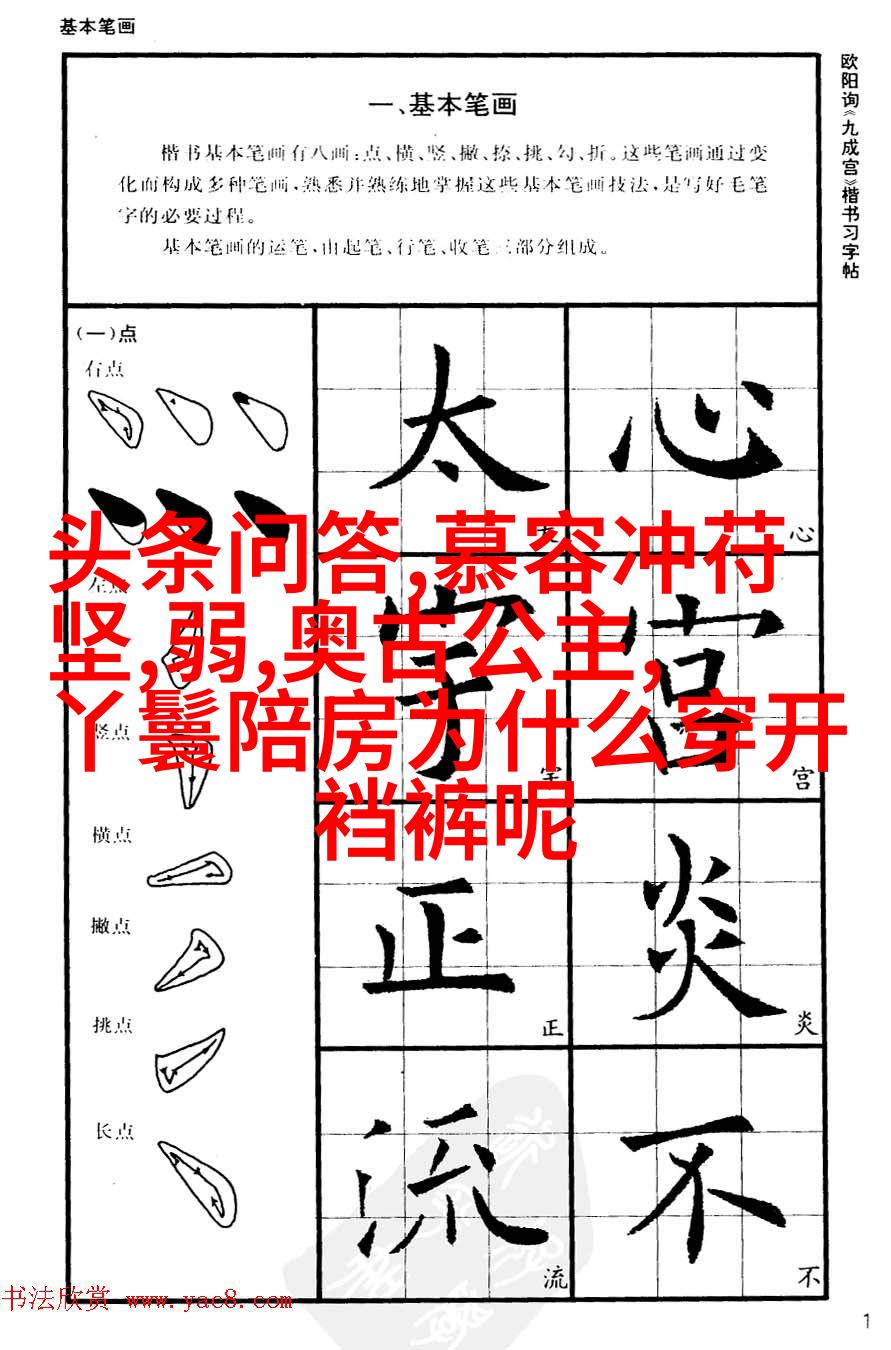 基本笔画
欧阳询《九成宫》楷书习字帖
一、基本笔画
楷书基本笔画有八画：点、横、竖、撇、捺、挑、勾、折。这些笔画通过变
化而构成多种笔画，熟悉并熟练地掌握这些基本笔画技法，是写好毛笔
字的必要过程。
基本笔画的运笔，由起笔、行笔、收笔三部分组成。
(一)点
右点
太 心
太 心
头条问答,慕容冲苻
坚,弱,奥古公主,
丫鬟陪房为什么穿开
裆裤呢
左点
宇 宫
竖点
宇 宫
横点
正 炎
撇点
挑点
正 炎
长点
流 不
流 不
书法欣赏 www.yac8.com
1